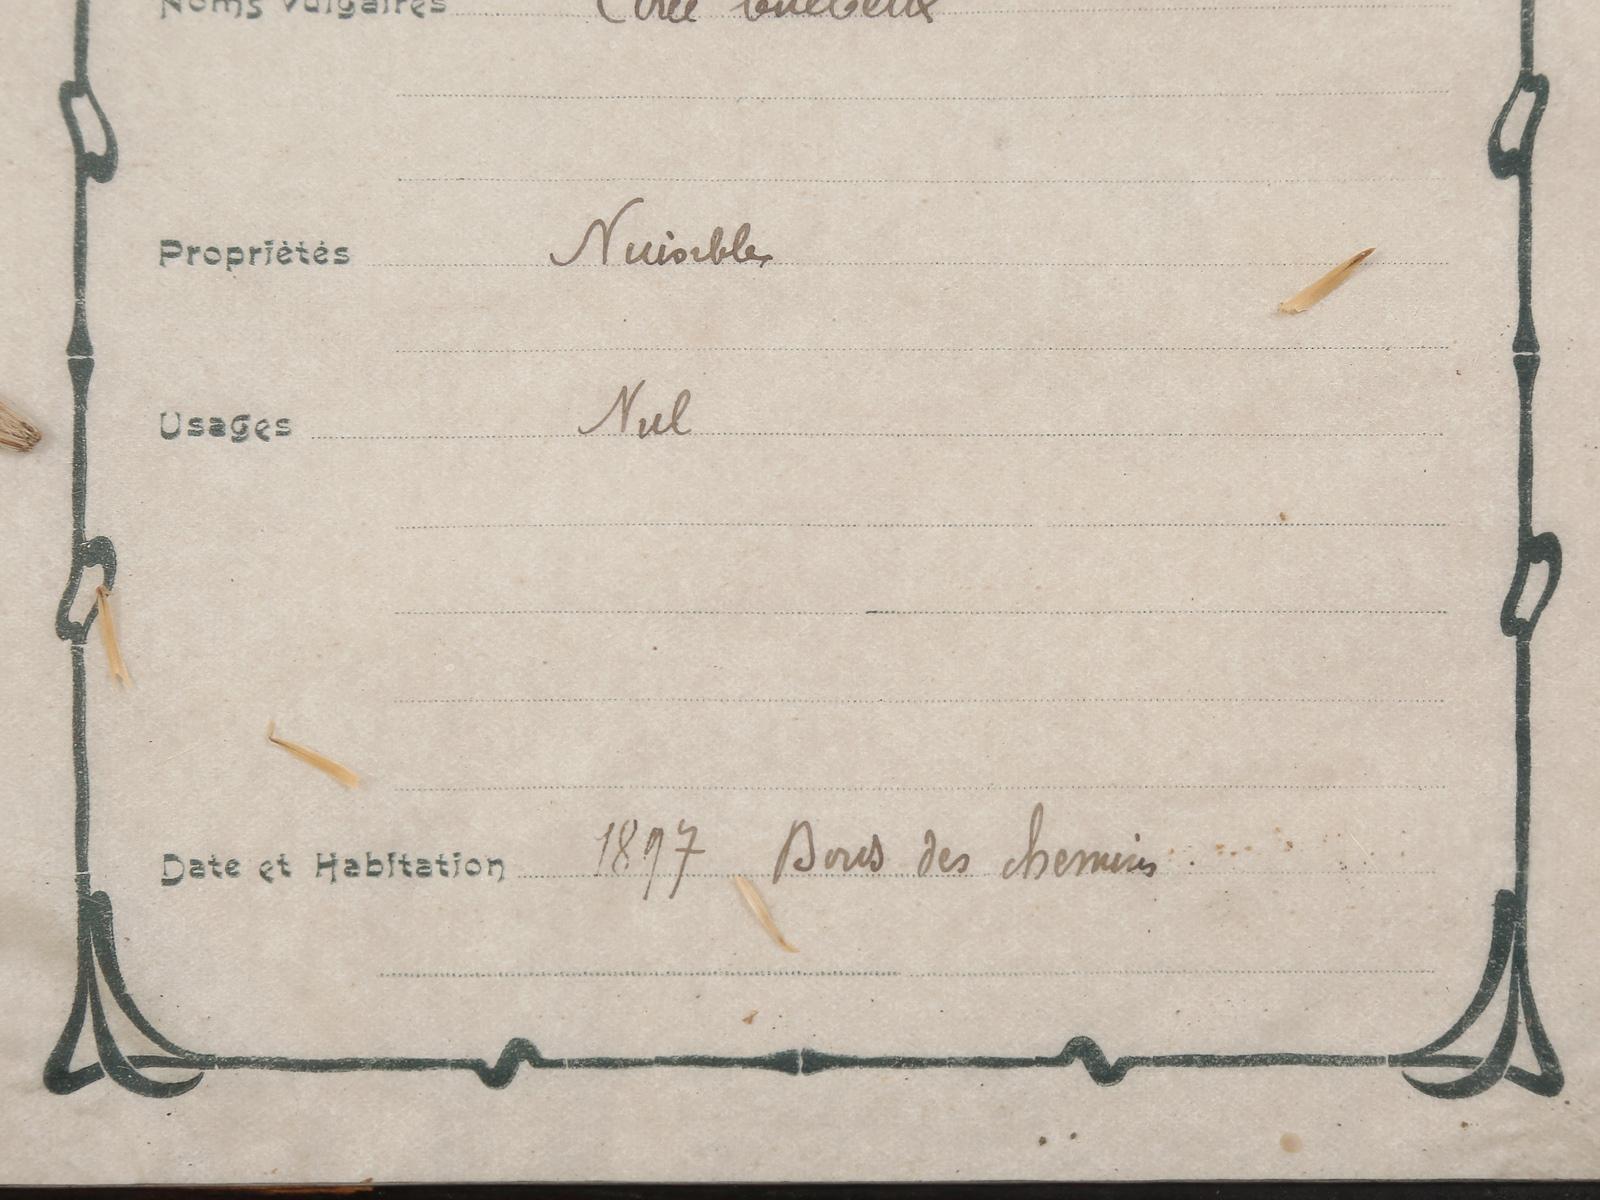 Noms vulgaires
Propriétés Nuisible
Usages Nul
Date et Habitation 1897 Bords des chemins